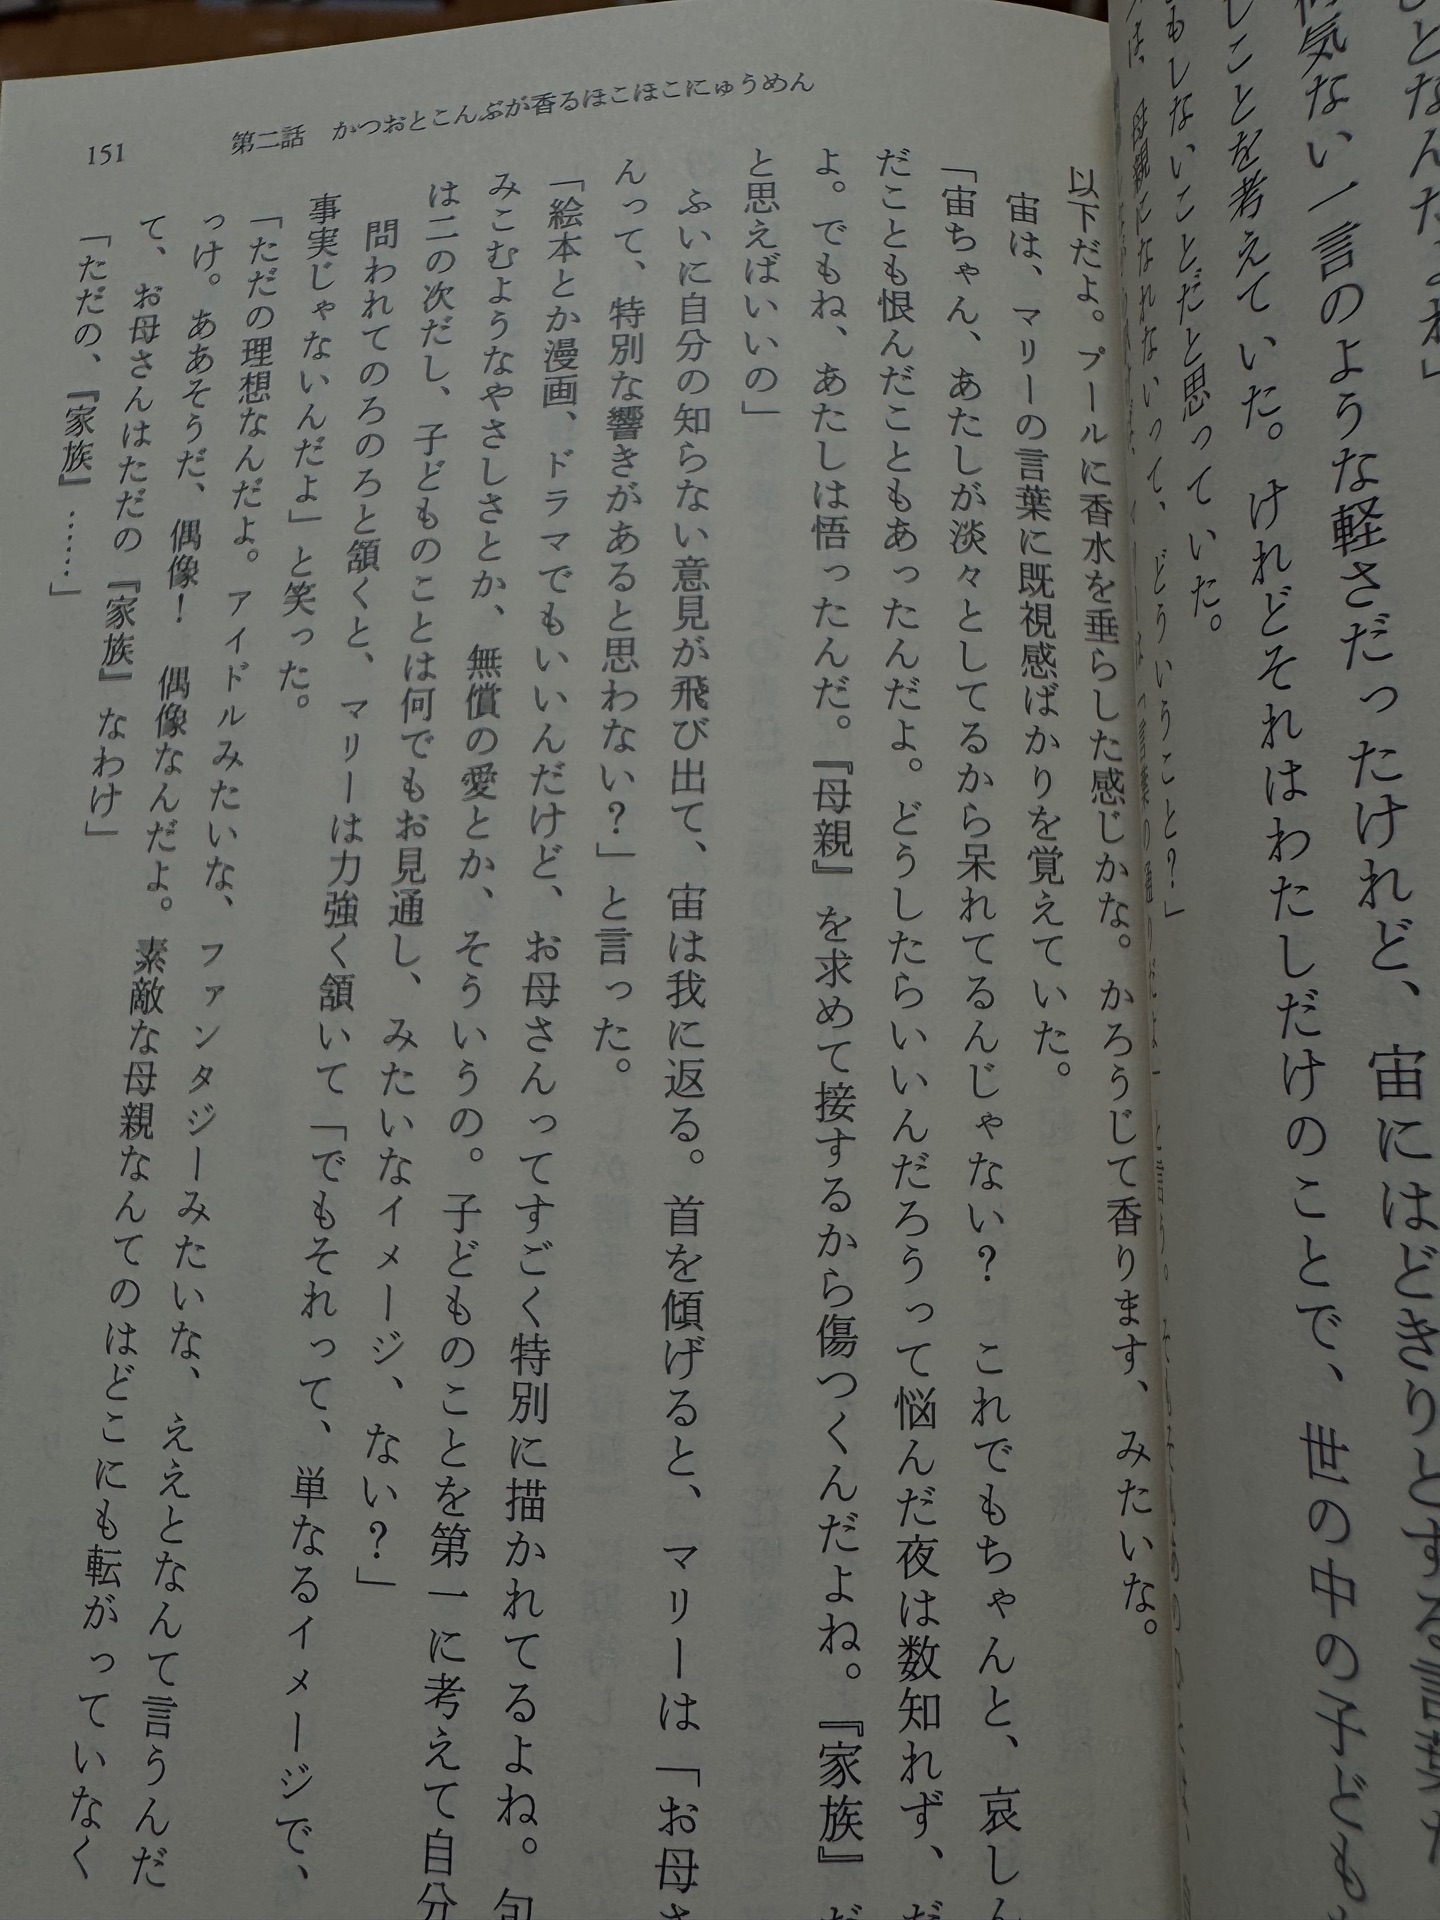 となんだよね」
気ない一言のような軽さだったけれど、宙にはどきりとする言葉だ
しことを考えていた。けれどそれはわたしだけのことで、世の中の子ども
もしないことだと思っていた。
は、母親になれないって、どういうこと？」
151
第二話　かつおとこんぶが香るほこほこにゅうめん
以下だよ。プールに香水を垂らした感じかな。かろうじて香ります、みたいな。
宙は、マリーの言葉に既視感ばかりを覚えていた。
「宙ちゃん、あたしが淡々としてるから呆れてるんじゃない？　これでもちゃんと、哀しん
だことも恨んだこともあったんだよ。どうしたらいいんだろうって悩んだ夜は数知れず、だ
よ。でもね、あたしは悟ったんだ。『母親』を求めて接するから傷つくんだよね。『家族』だ
と思えばいいの」
ふいに自分の知らない意見が飛び出て、宙は我に返る。首を傾げると、マリーは「お母さ
んって、特別な響きがあると思わない？」と言った。
「絵本とか漫画、ドラマでもいいんだけど、お母さんってすごく特別に描かれてるよね。包
みこむようなやさしさとか、無償の愛とか、そういうの。子どものことを第一に考えて自分
は二の次だし、子どものことは何でもお見通し、みたいなイメージ、ない？」
問われてのろのろと頷くと、マリーは力強く頷いて「でもそれって、単なるイメージで、
事実じゃないんだよ」と笑った。
「ただの理想なんだよ。アイドルみたいな、ファンタジーみたいな、ええとなんて言うんだ
っけ。ああそうだ、偶像！　偶像なんだよ。素敵な母親なんてのはどこにも転がっていなく
て、お母さんはただの『家族』なわけ」
「ただの、『家族』……」